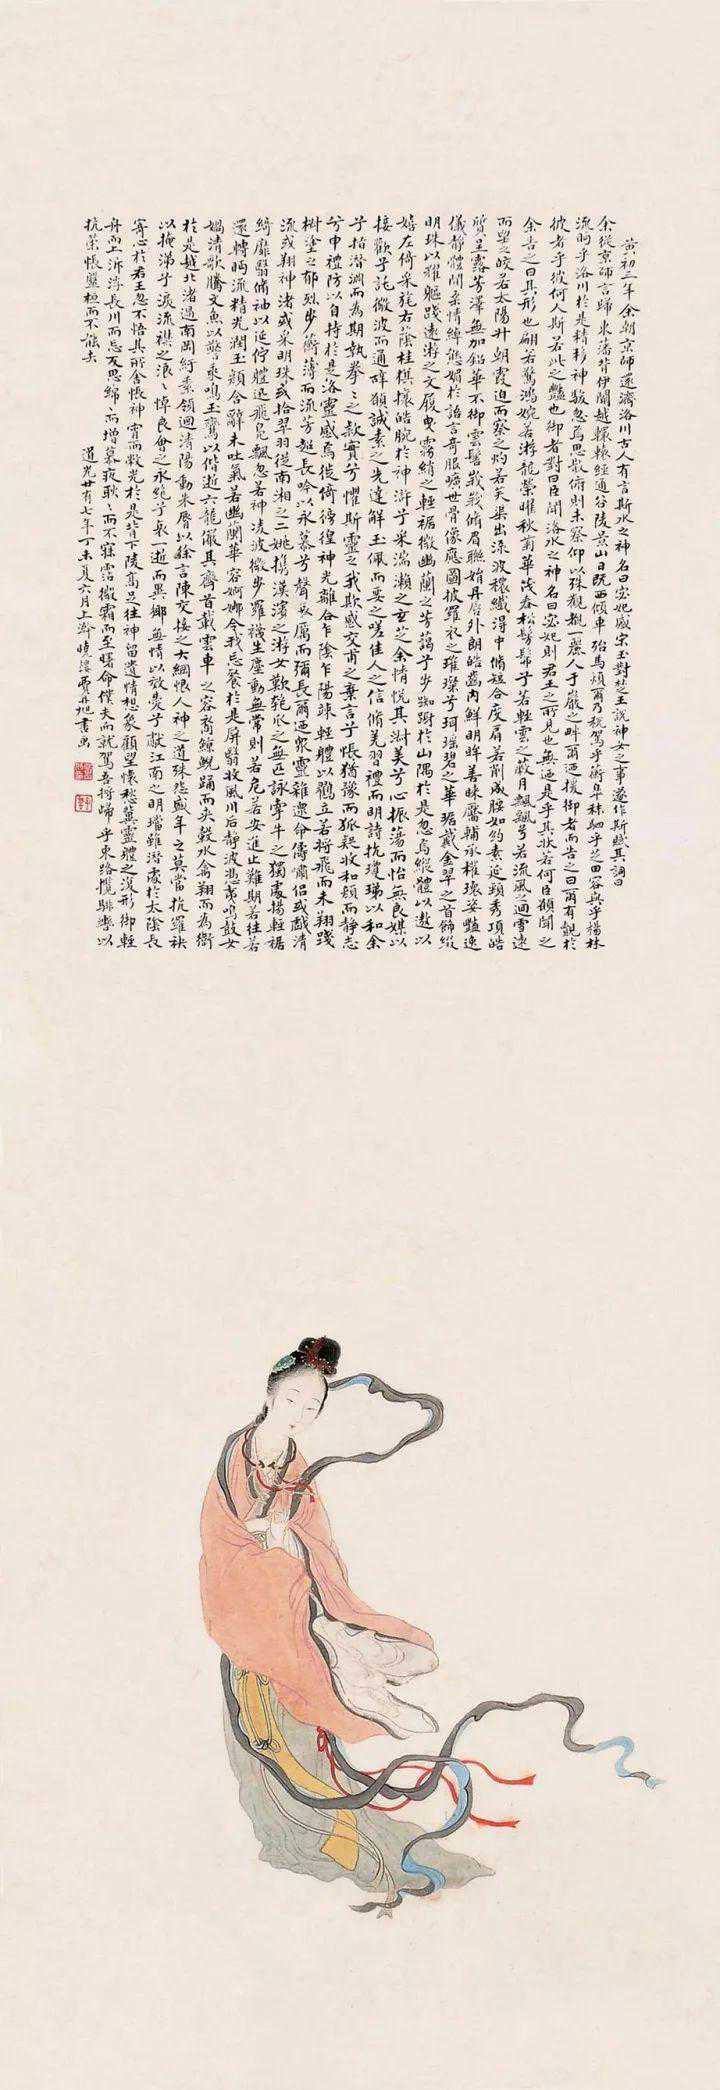 黃初三年余朝京師還濟洛川古人有言斯水之神名曰宓妃感宋玉對楚王說神女之事遂作斯賦其詞曰
余從京師言歸東藩背伊闕越轘轅經通谷陵景山日既西傾車殆馬煩爾乃稅駕乎蘅皋秣駟乎芝田容與乎楊林
流眄乎洛川於是精移神駭忽焉思散俯則未察仰以殊觀覩一麗人于巖之畔爾迺援御者而告之曰爾有覿於
彼者乎彼何人斯若此之豔也御者對曰臣聞洛水之神名曰宓妃則君王之所見也無迺是乎其狀若何臣願聞之
余告之曰其形也翩若驚鴻婉若游龍榮曜秋菊華茂春松髣髴乎若輕雲之蔽月飄飄兮若流風之迴雪遠
而望之皎若太陽升朝霞迫而察之灼若芙渠出淥波穠纖得中脩短合度肩若削成腰如約素延頸秀項皓
質呈露芳澤無加鉛華不御雲髻峩峩脩眉聯娟丹脣外朗皓齒內鮮明眸善睞靨輔承權瓌姿豔逸
儀靜體閒柔情綽態媚於語言奇服曠世骨像應圖披羅衣之璀璨兮珥瑤碧之華琚戴金翠之首飾綴
明珠以耀軀踐遠游之文履曳霧綃之輕裾微幽蘭之芳藹兮步踟躕於山隅於是忽焉縱體以遨以
嬉左倚采旄右蔭桂旗攘皓腕於神滸兮采湍瀨之玄芝余情悅其淑美兮心振蕩而怡無良媒以
接歡兮託微波而通辭願誠素之先達解玉佩而要之嗟佳人之信脩羌習禮而明詩抗瓊珶以和余
兮指潛淵而為期執拳〻之款實兮懼斯靈之我欺感交甫之棄言兮悵猶豫而狐疑收和顏而靜志
兮申禮防以自持於是洛靈感焉徙倚徬徨神光離合乍陰乍陽竦輕體以鶴立若將飛而未翔踐
椒塗之郁烈步蘅薄而流芳超長吟以永慕兮聲哀厲而彌長爾迺衆靈雜遝命儔嘯侶或戲清
流或翔神渚或采明珠或拾翠羽從南湘之二姚攜漢濱之游女歎匏瓜之無匹詠牽牛之獨處揚輕裾
綺靡翳脩袖以延佇體迅飛鳧飄忽若神淩波微步羅襪生塵動無常則若危若安進止難期若往若
還轉眄流精光潤玉顏含辭未吐氣若幽蘭華容婀娜令我忘餐於是屏翳收風川后靜波馮夷鳴鼓女
媧清歌騰文魚以警乘鳴玉鸞以偕逝六龍儼其齊首載雲車之容裔鯨鯢踊而夾轂水禽翔而為衛
於是越北渚過南岡紆素領迴清陽動朱脣以徐言陳交接之大綱恨人神之道殊怨盛年之莫當抗羅袂
以掩涕兮淚流襟之浪〻悼良會之永絕兮哀一逝而異鄉無情以效愛兮獻江南之明璫雖潛處於太陰長
寄心於君王忽不悟其所舍悵神宵而蔽光於是背下陵高足往神留遺情想象顧望懷愁冀靈體之復形御輕
舟而上泝浮長川而忘反思綿〻而增慕夜耿〻而不寐霑微霜而至曙命僕夫而就駕吾將歸乎東路攬騑轡以
抗策悵盤桓而不能去
道光廿有七年丁未夏六月上澣曉樓費丹旭書畫